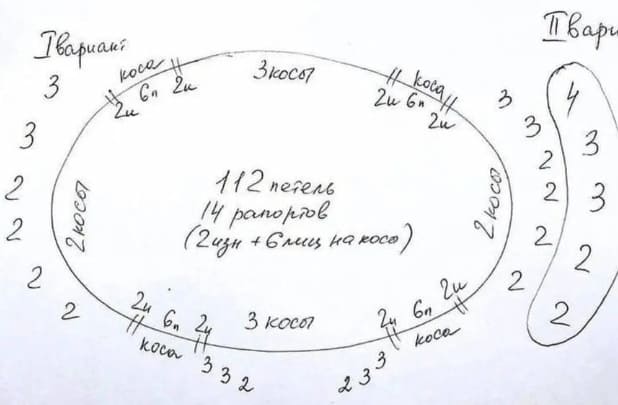 I вариант
II вари
коса
2и 6п 2и
3 косы
коса
2и 6п 2и
3
3
2
2
2
2
2 косы
112 петель
14 рапортов
(2изн + 6 лиц на косу)
2 косы
3
3
2
2
2
2
4
3
3
2
2
2и 6п 2и
коса
3 косы
2и 6п 2и
коса
3 3 2
2 3 3